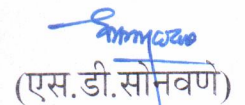 (एस.डी.सोनवणे)